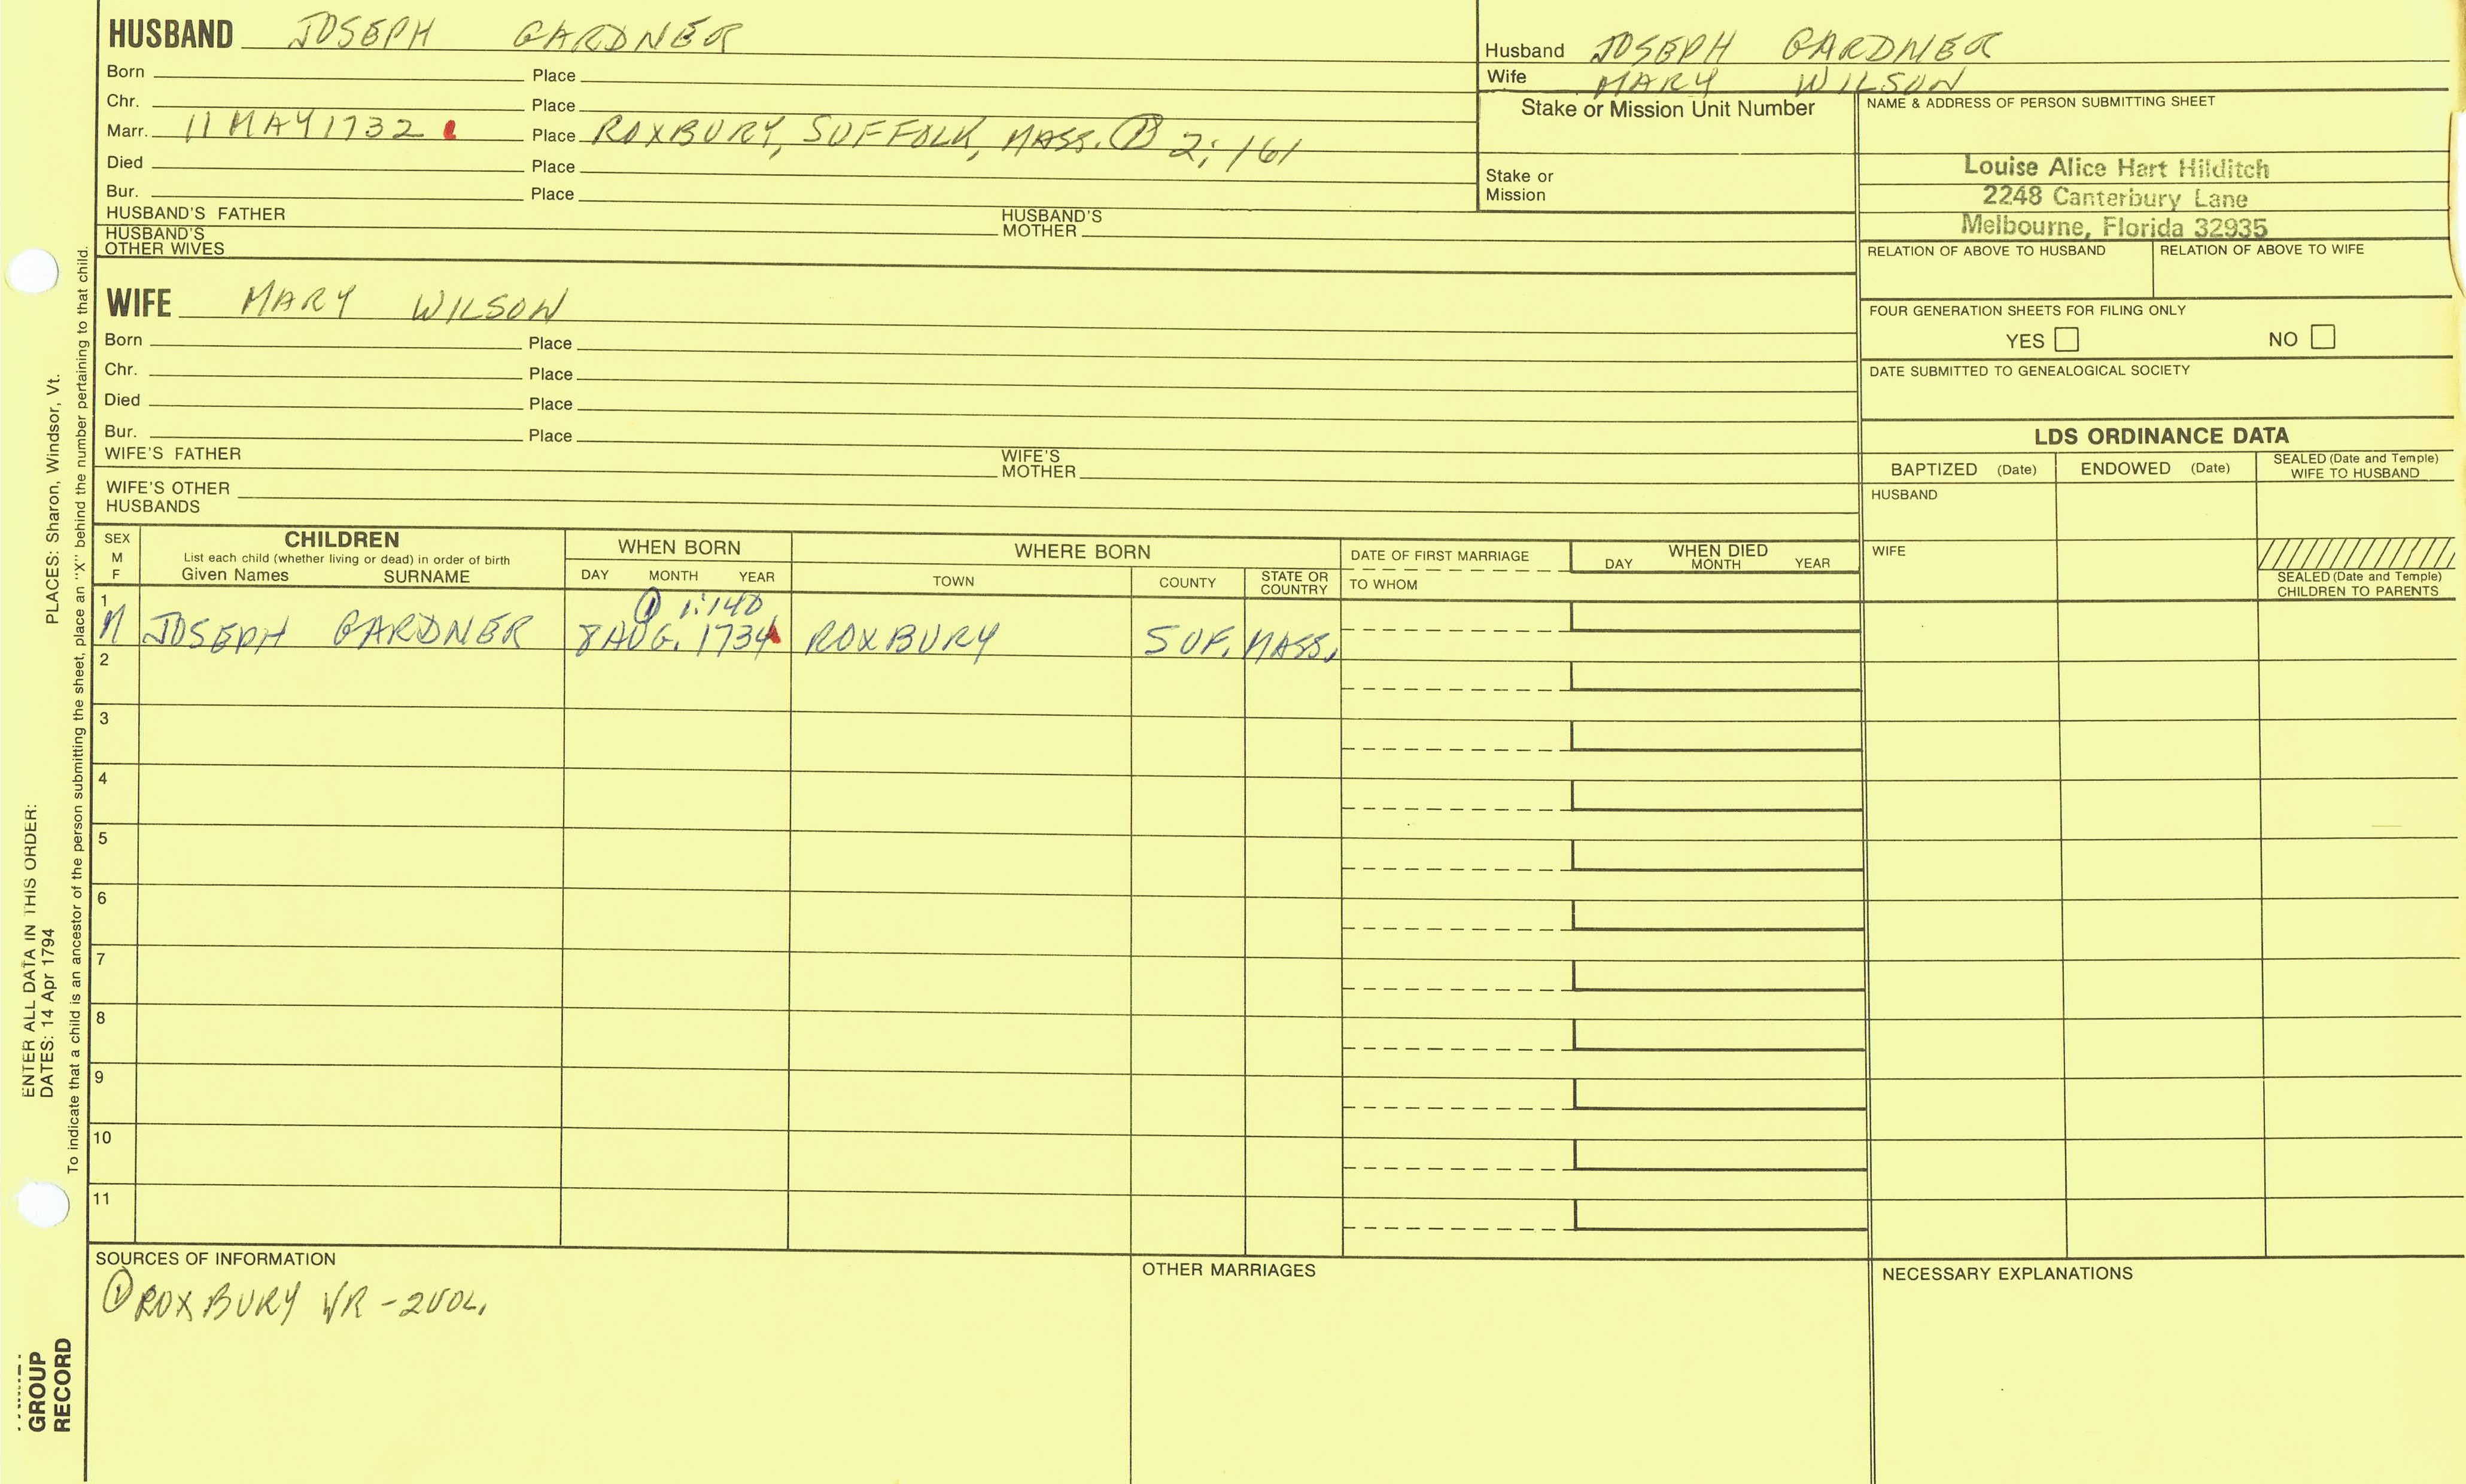 HUSBAND JOSEPH GARDNER
Born Place
Chr. Place
Marr. 11 MAY 1732 Place ROXBURY, SUFFOLK, MASS. ① 2:161
Died Place
Bur. Place
HUSBAND'S FATHER HUSBAND'S MOTHER
HUSBAND'S OTHER WIVES
Husband JOSEPH GARDNER
Wife MARY WILSON
Stake or Mission Unit Number
Stake or Mission
NAME & ADDRESS OF PERSON SUBMITTING SHEET
Louise Alice Hart Hilditch
2248 Canterbury Lane
Melbourne, Florida 32935
RELATION OF ABOVE TO HUSBAND RELATION OF ABOVE TO WIFE
FOUR GENERATION SHEETS FOR FILING ONLY
YES NO
DATE SUBMITTED TO GENEALOGICAL SOCIETY
WIFE MARY WILSON
Born Place
Chr. Place
Died Place
Bur. Place
WIFE'S FATHER WIFE'S MOTHER
WIFE'S OTHER HUSBANDS
LDS ORDINANCE DATA
BAPTIZED (Date) ENDOWED (Date) SEALED (Date and Temple) WIFE TO HUSBAND
HUSBAND
WIFE
SEALED (Date and Temple) CHILDREN TO PARENTS
SEX M F
CHILDREN
List each child (whether living or dead) in order of birth
Given Names SURNAME
WHEN BORN
DAY MONTH YEAR
WHERE BORN
TOWN COUNTY STATE OR COUNTRY
DATE OF FIRST MARRIAGE
TO WHOM
WHEN DIED
DAY MONTH YEAR
① 1:140
1 M JOSEPH GARDNER 8 AUG. 1734 ROXBURY SUF. MASS.
2
3
4
5
6
7
8
9
10
11
SOURCES OF INFORMATION
① ROXBURY VR - 2 VOL.
OTHER MARRIAGES
NECESSARY EXPLANATIONS
ENTER ALL DATA IN THIS ORDER:
DATES: 14 Apr 1794 PLACES: Sharon, Windsor, Vt.
To indicate that a child is an ancestor of the person submitting the sheet, place an "X" behind the number pertaining to that child.
GROUP
RECORD